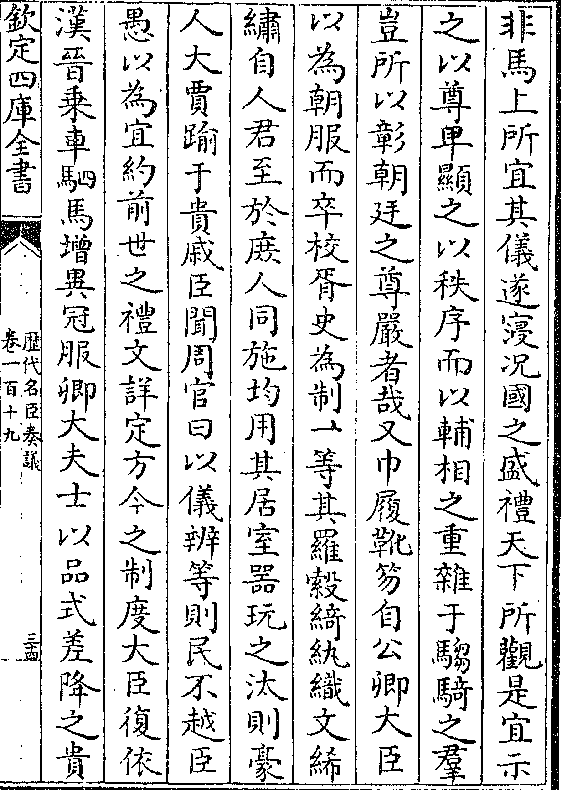 非馬上所宜其儀遂寝况國之盛禮天下所觀是宜示
之以尊卑顯之以秩序而以輔相之重雜于騶騎之羣
豈所以彰朝廷之尊嚴者哉又巾履靴笏自公卿大臣
以為朝服而卒校胥史為制一等其羅縠綺紈織文絺
繡自人君至於庶人同施均用其居室器玩之汰則豪
人大賈踰于貴戚臣聞周官曰以儀辨等則民不越臣
愚以為宜約前世之禮文詳定方今之制度大臣復依
漢晉乗車駟馬增異冠服卿大夫士以品式差降之貴
欽定四庫全書
歴代名臣奏議
卷一百十九
三十四